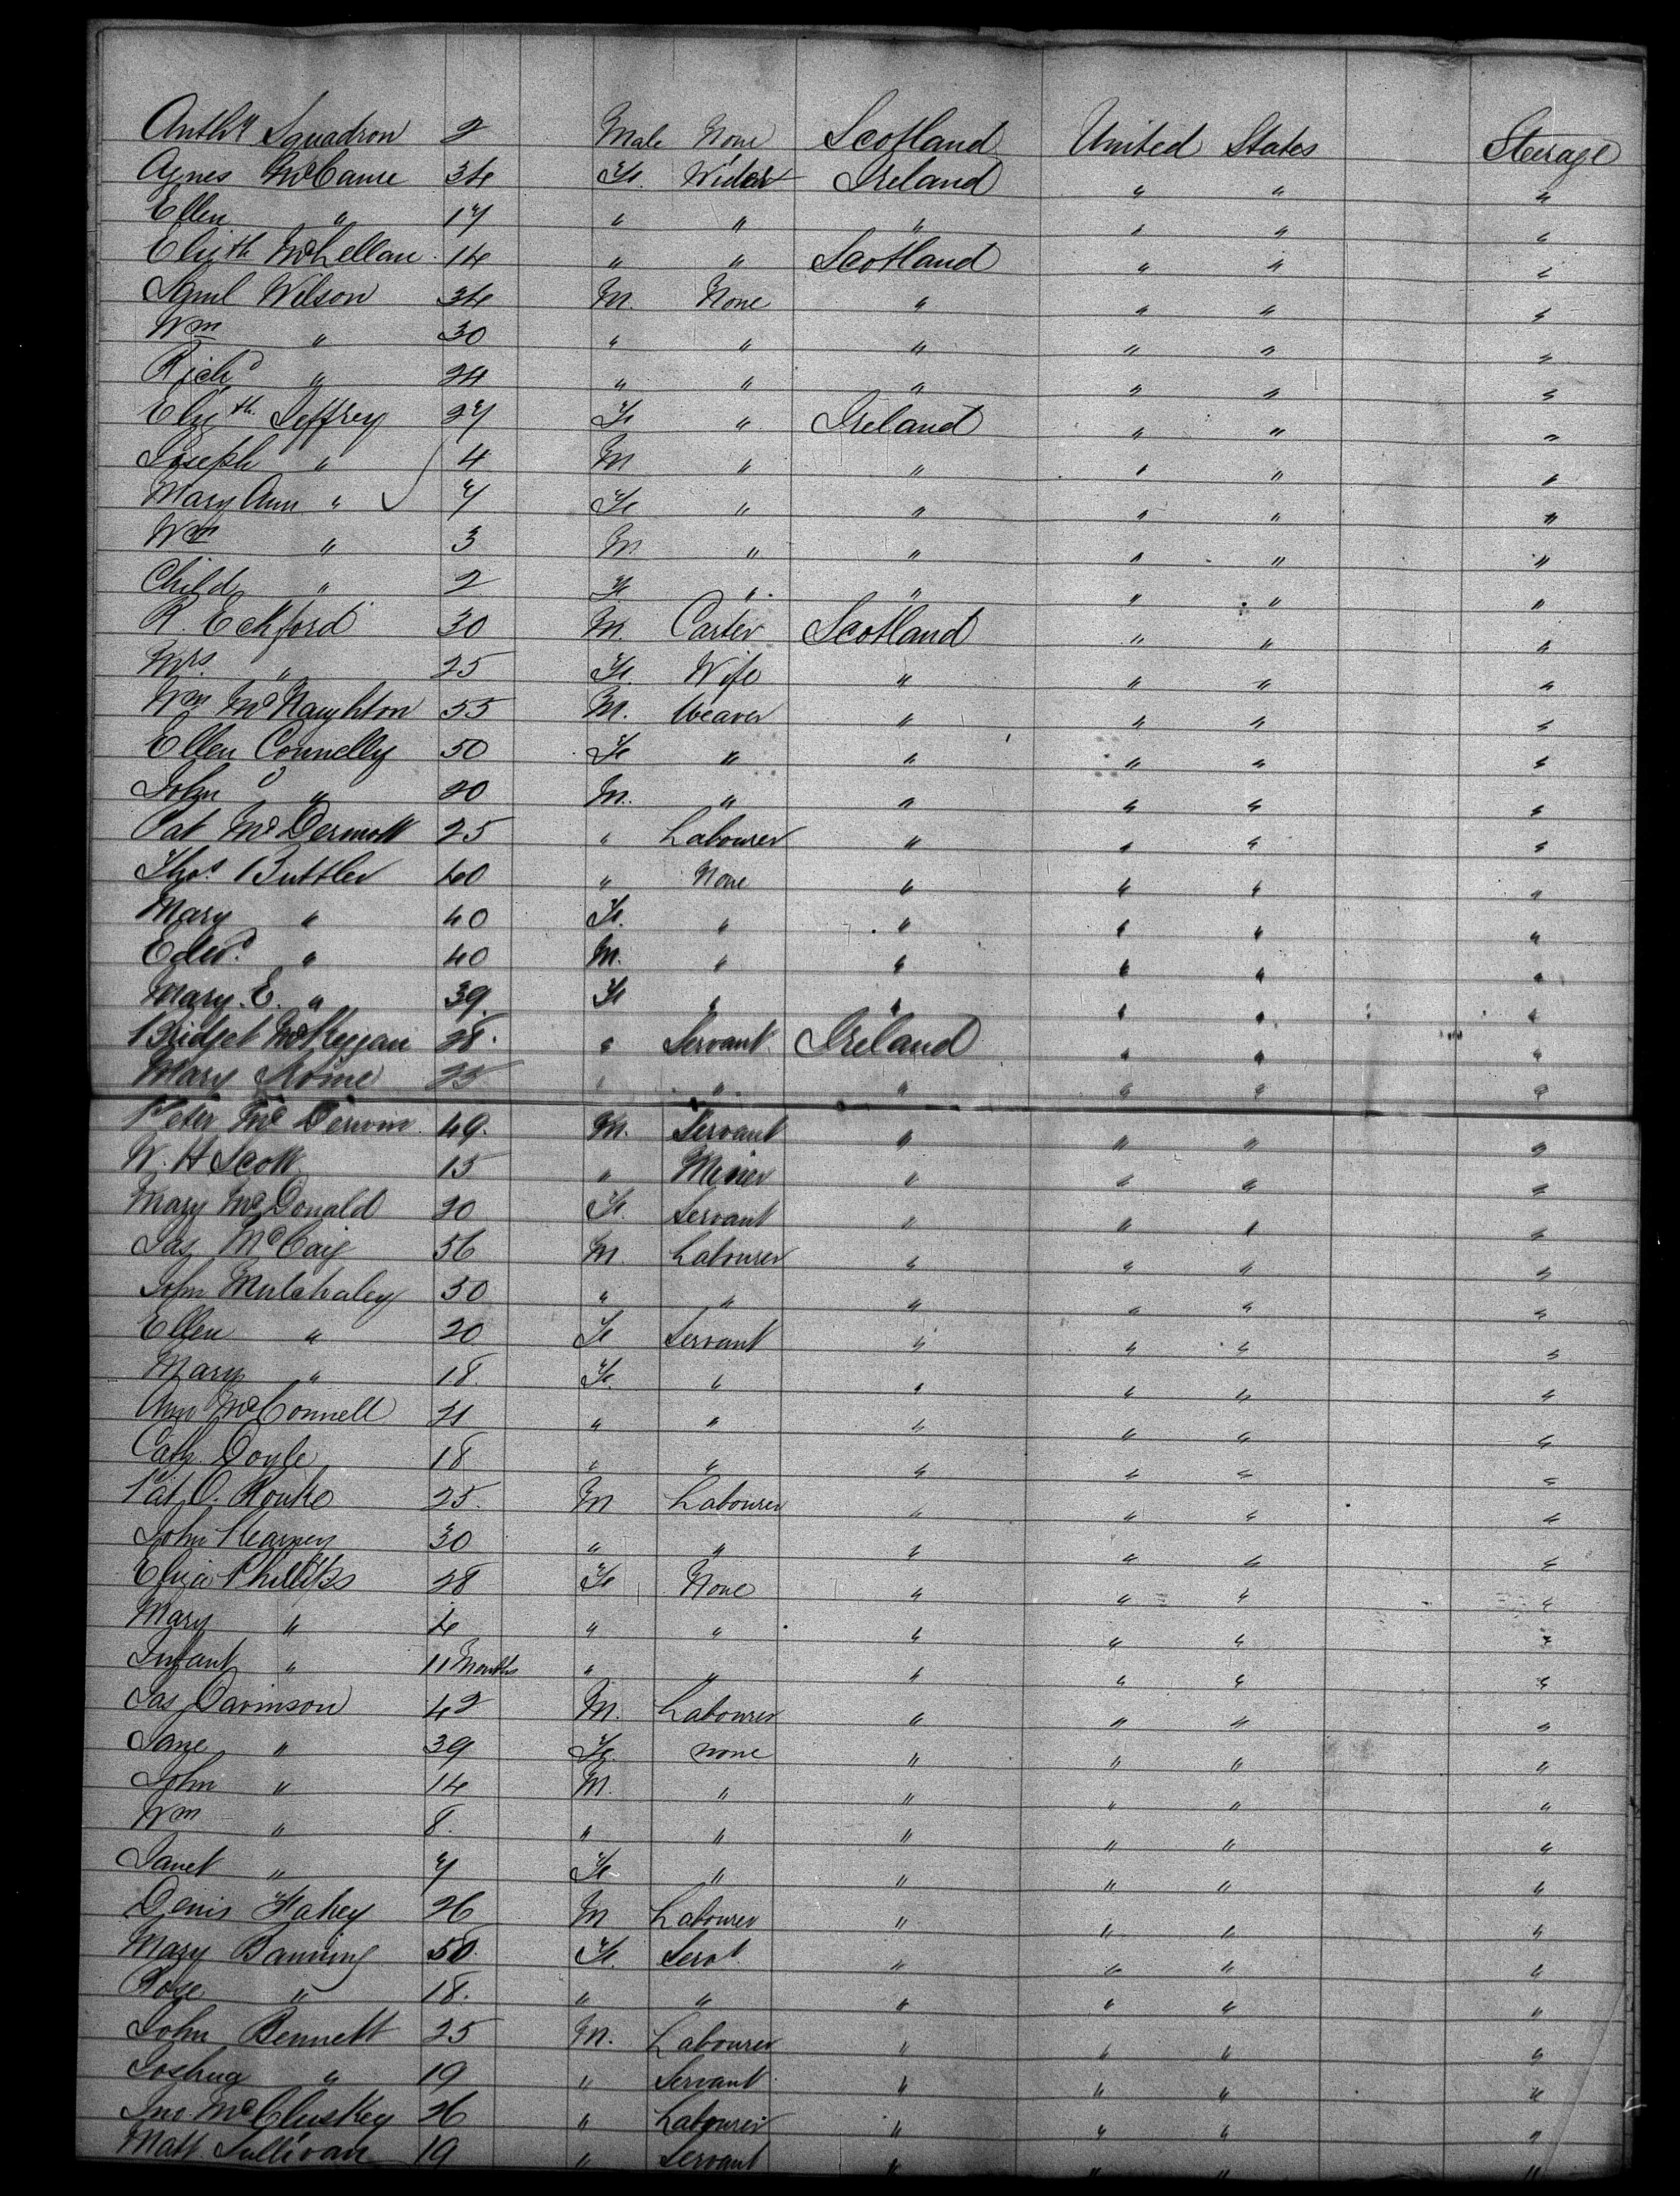 Anthy Squadron 2 Male None Scotland United States Steerage
Agnes 34 Fe. Widow Ireland " " "
Ellen " 17 " " " " " "
Elizth McLellan 14 " " Scotland " " "
Saml Wilson 34 M. None " " " "
Wm " 30 " " " " " "
Richd " 24 " " " " " "
Elizth Jeffrey 27 Fe " Ireland " " "
Joseph " 4 M " " " " "
Mary Ann " 7 Fe " " " " "
Wm " 3 M " " " " "
Child " 2 Fe " " " " "
R. Eckford 30 M. Carter Scotland " " "
Mrs. " 25 Fe. Wife " " " "
Wm McNaughton 55 M. Weaver " " " "
Ellen Connelly 50 Fe " " " " "
John " 20 M. " " " " "
Pat McDermott 25 " Labourer " " " "
Thos. Buttler 40 " None " " " "
Mary " 40 Fe. " " " " "
Edwd. " 40 M. " " " " "
Mary. E. " 39. Fe " " " " "
Bridget McKeggan 28. " Servant Ireland " " "
Mary 25 " " " " " "
Peter Mc 49. M. Servant " " " "
W. H Scott 15 " Miner " " " "
Mary McDonald 20 Fe. Servant " " " "
Jas McCaig 56 M. Labourer " " " "
John Mulchaley 30 " " " " " "
Ellen " 20 Fe Servant " " " "
Mary " 18. Fe. " " " " "
Ann McConnell 21 " " " " " "
Cath. Doyle 18 " " " " " "
Pat O. Rourke 25. M Labourer " " " "
John Kearney 30 " " " " " "
Eliza Phillips 28 Fe None " " " "
Mary " 4 " " " " " "
Infant " 11 Months " " " " " "
Jas Davinson 42 M. Labourer " " " "
Jane " 39 Fe. none " " " "
John " 14 M. " " " " "
Wm " 8. " " " " " "
Janet " 7 Fe " " " " "
Denis Fahey 26 M Labourer " " " "
Mary Banning 50. Fe. Servt. " " " "
Rose " 18. " " " " " "
John Bennett 25 M. Labourer " " " "
Joshua " 19 " Servant " " " "
Jno McCluskey 26 " Labourer " " " "
Matt. Sullivan 19 " Servant " " " "